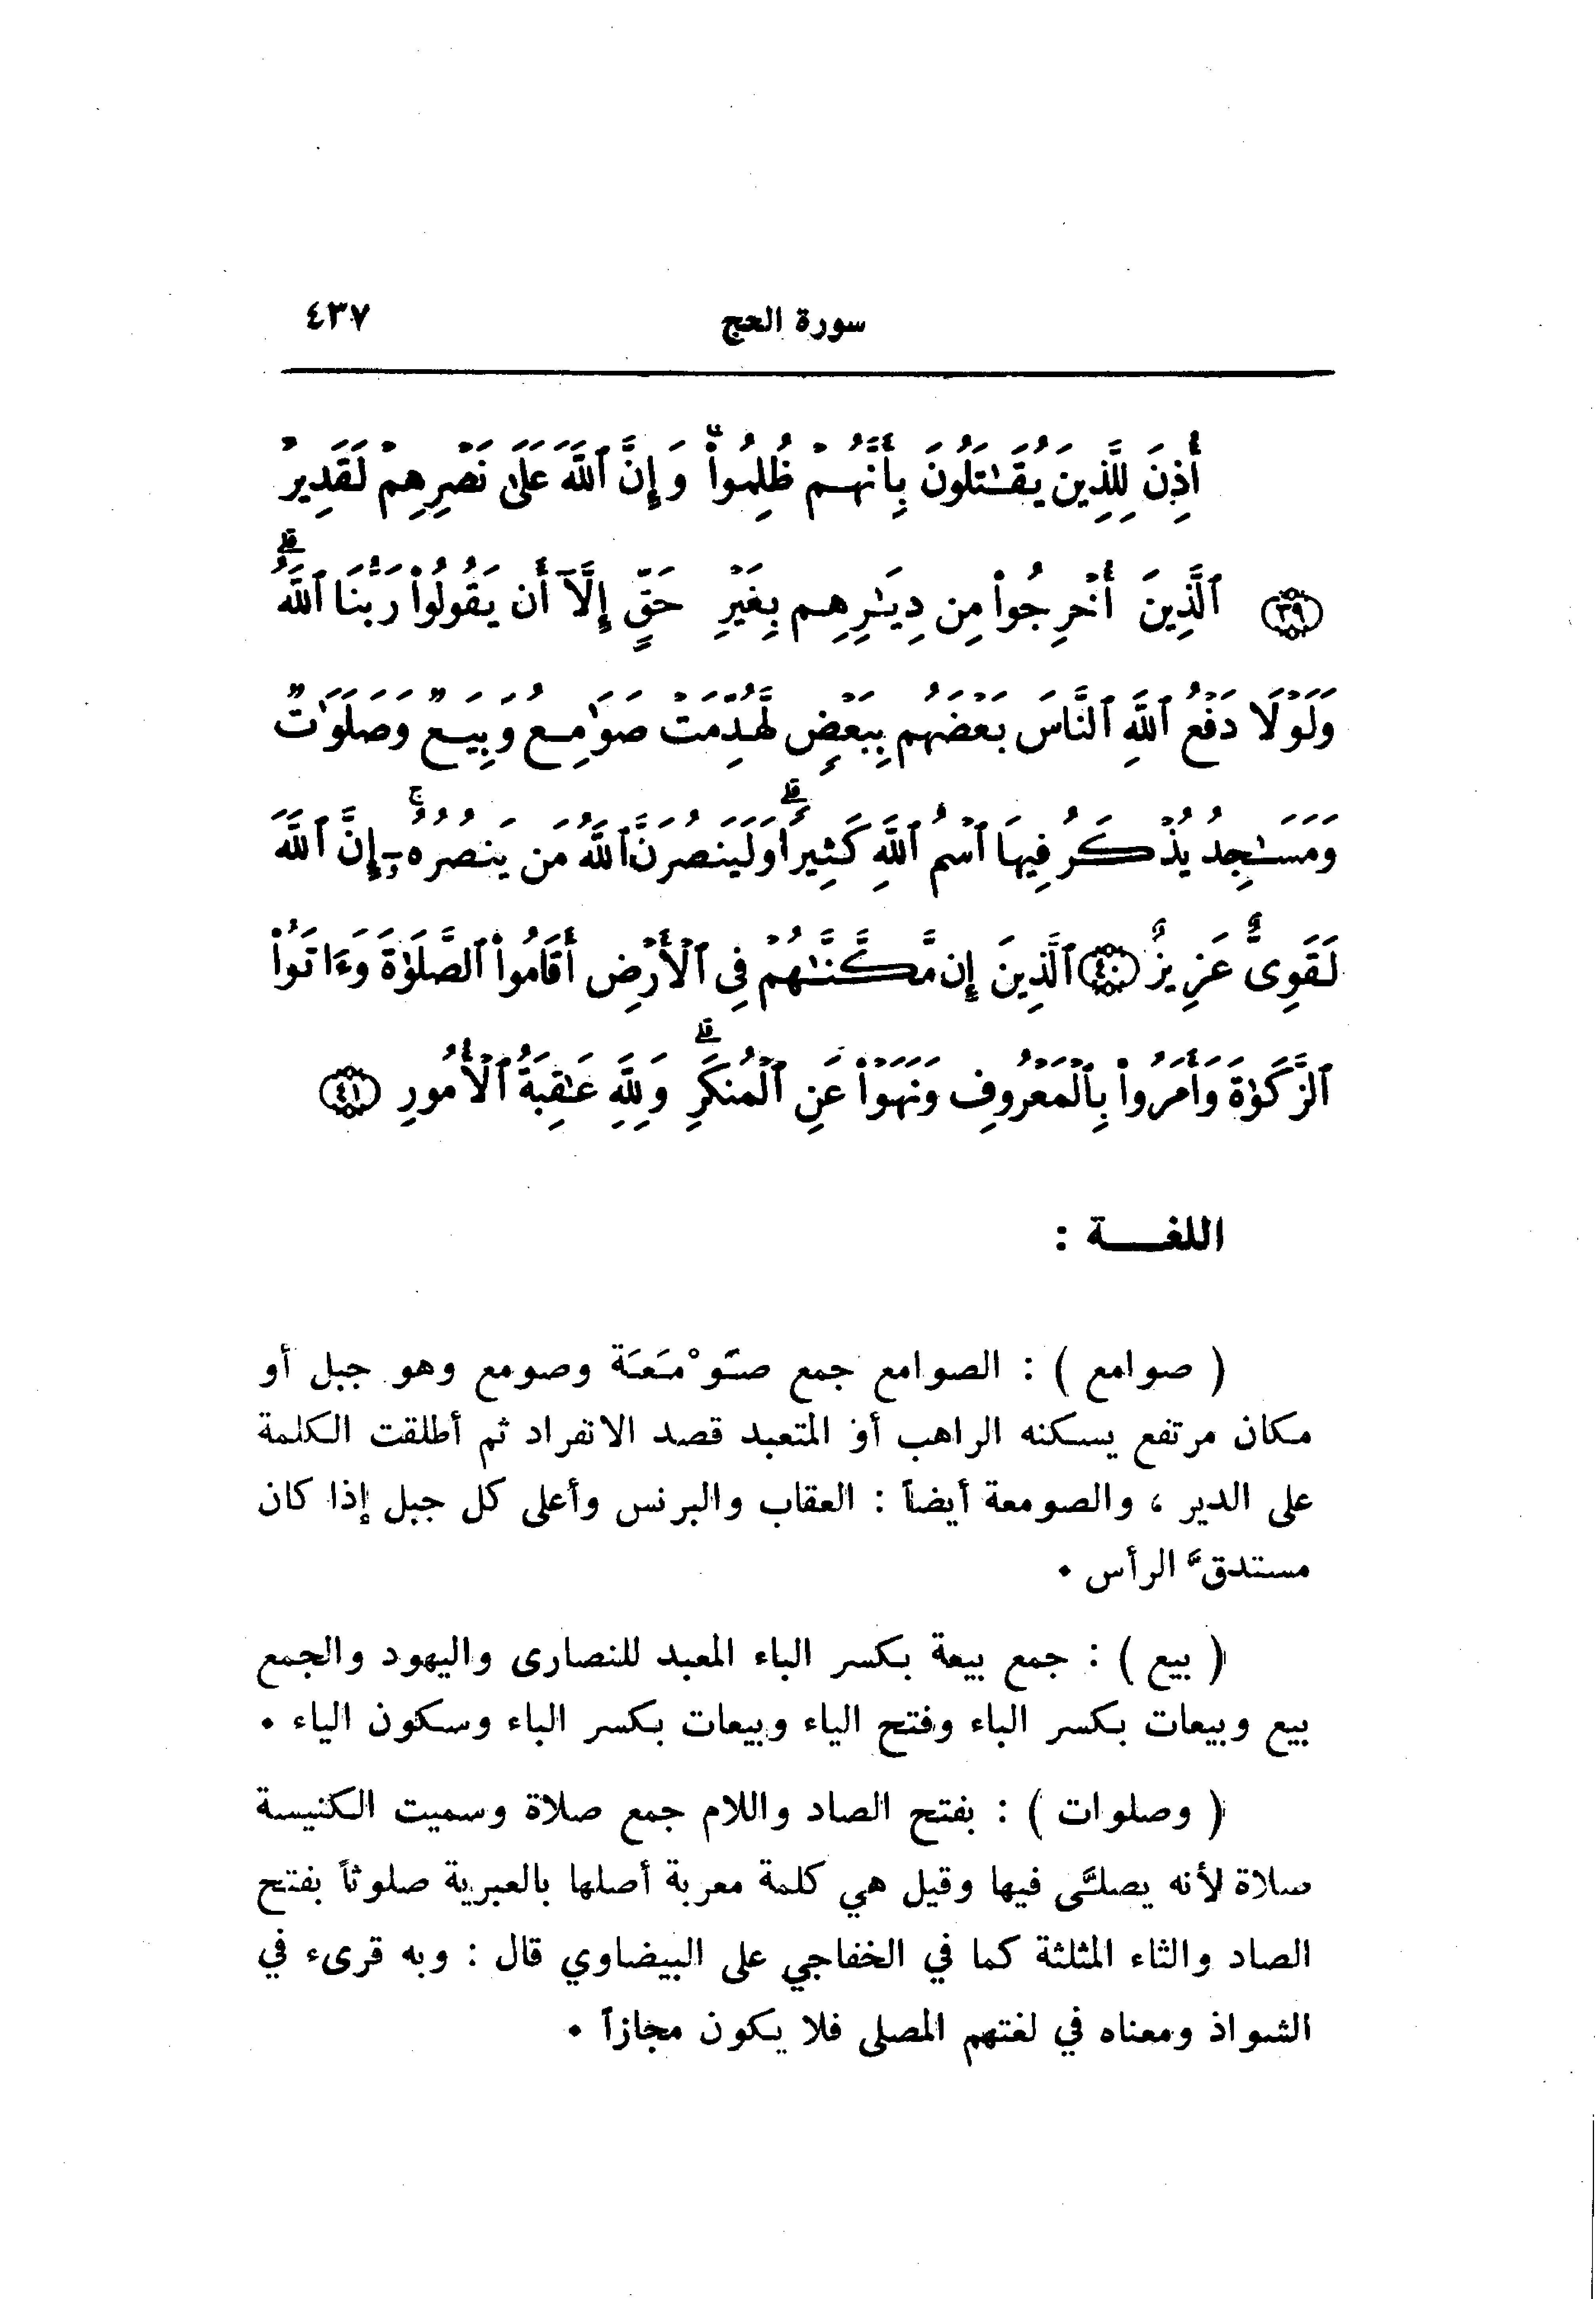 سورة الحج ٤٣٧
أُذِنَ لِلَّذِينَ يُقَٰتَلُونَ بِأَنَّهُمْ ظُلِمُوا۟ ۚ وَإِنَّ ٱللَّهَ عَلَىٰ نَصْرِهِمْ لَقَدِيرٌ
﴿٣٩﴾ ٱلَّذِينَ أُخْرِجُوا۟ مِن دِيَٰرِهِم بِغَيْرِ حَقٍّ إِلَّآ أَن يَقُولُوا۟ رَبُّنَا ٱللَّهُ ۗ
وَلَوْلَا دَفْعُ ٱللَّهِ ٱلنَّاسَ بَعْضَهُم بِبَعْضٍ لَّهُدِّمَتْ صَوَٰمِعُ وَبِيَعٌ وَصَلَوَٰتٌ
وَمَسَٰجِدُ يُذْكَرُ فِيهَا ٱسْمُ ٱللَّهِ كَثِيرًا ۗ وَلَيَنصُرَنَّ ٱللَّهُ مَن يَنصُرُهُۥٓ ۚ إِنَّ ٱللَّهَ
لَقَوِىٌّ عَزِيزٌ ﴿٤٠﴾ ٱلَّذِينَ إِن مَّكَّنَّٰهُمْ فِى ٱلْأَرْضِ أَقَامُوا۟ ٱلصَّلَوٰةَ وَءَاتَوُا۟
ٱلزَّكَوٰةَ وَأَمَرُوا۟ بِٱلْمَعْرُوفِ وَنَهَوْا۟ عَنِ ٱلْمُنكَرِ ۗ وَلِلَّهِ عَٰقِبَةُ ٱلْأُمُورِ ﴿٤١﴾
اللغـــة :
( صوامع ) : الصوامع جمع صَوْمَعَة وصومع وهو جبل أو
مكان مرتفع يسكنه الراهب أو المتعبد قصد الانفراد ثم أطلقت الكلمة
على الدير ، والصومعة أيضاً : العقاب والبرنس وأعلى كل جبل إذا كان
مستدقَّ الرأس .
( بيع ) : جمع بيعة بكسر الباء المعبد للنصارى واليهود والجمع
بيع وبيعات بكسر الباء وفتح الياء وبيعات بكسر الباء وسكون الياء .
( وصلوات ) : بفتح الصاد واللام جمع صلاة وسميت الكنيسة
صلاة لأنه يصلَّى فيها وقيل هي كلمة معربة أصلها بالعبرية صلوثاً بفتح
الصاد والثاء المثلثة كما في الخفاجي على البيضاوي قال : وبه قرىء في
الشواذ ومعناه في لغتهم المصلى فلا يكون مجازاً .